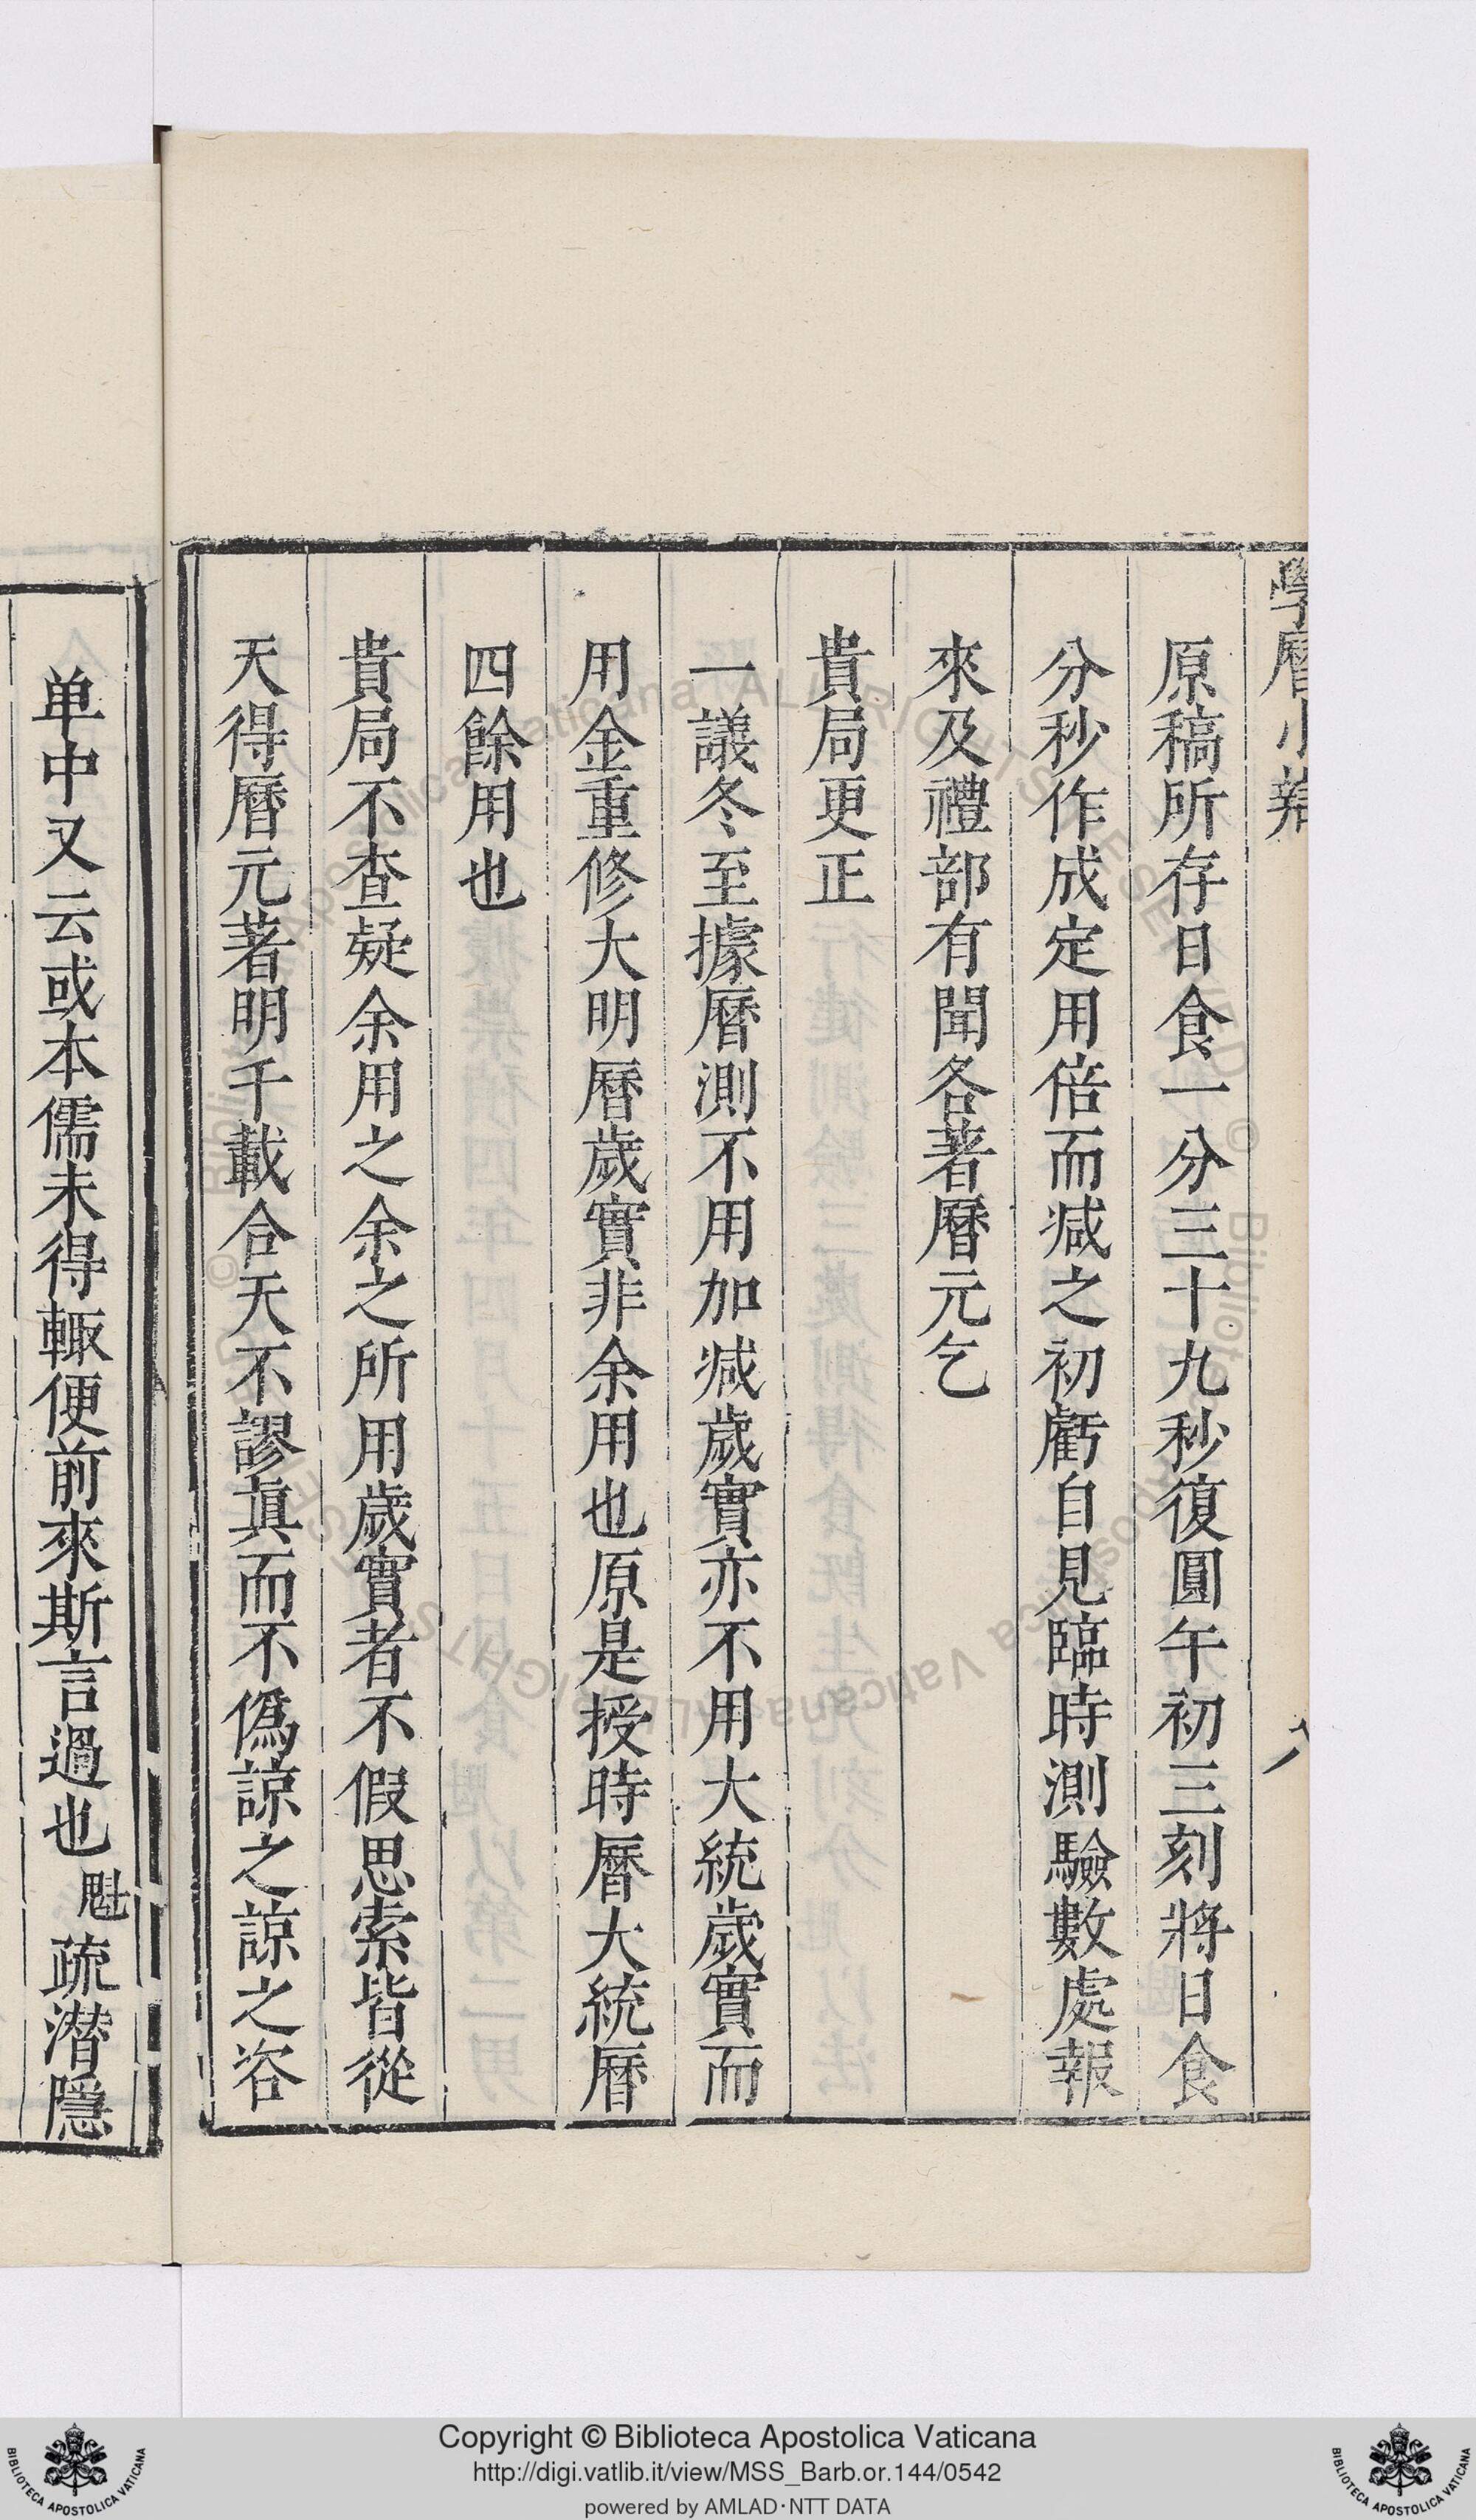 學曆小辯
八
原稿所存日食一分三十九秒復圓午初三刻將日食
分秒作成定用倍而减之初虧自見臨時測驗數處報
來及禮部有聞各著曆元乞
貴局更正
一議冬至據曆測不用加减歲實亦不用大統歲實而
用金重修大明曆歲實非余用也原是授時曆大統曆
四餘用也
貴局不查疑余用之余之所用歲實者不假思索皆從
天得曆元著明千載合天不謬眞而不僞諒之諒之咨
单中又云或本儒未得輙便前來斯言過也魁疏潜隱
Copyright © Biblioteca Apostolica Vaticana
http://digi.vatlib.it/view/MSS_Barb.or.144/0542
powered by AMLAD·NTT DATA
BIBLIOTECA APOSTOLICA VATICANA
BIBLIOTECA APOSTOLICA VATICANA